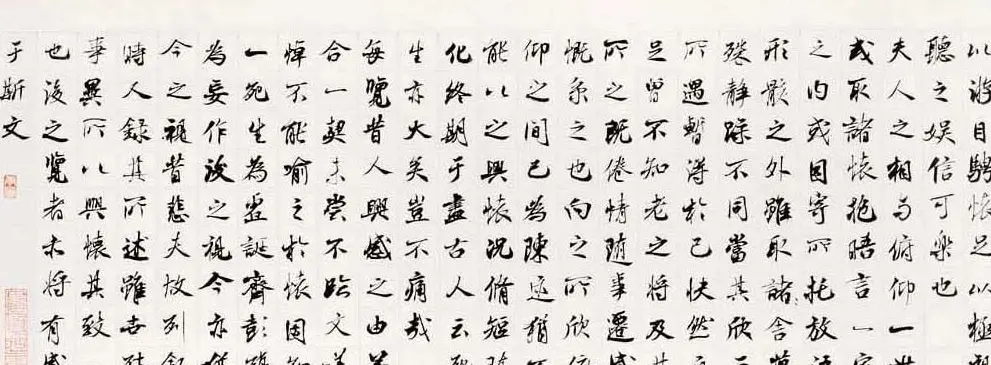 以游目騁懷足以極
聽之娛信可樂也
夫人之相与俯仰一
或取諸懷抱晤言一
之内或因寄所托放
形骸之外雖取諸舍
殊静躁不同當其欣
所遇暫得於己快然
足曾不知老之将及
所之既倦情随事遷
慨系之也向之所欣
仰之間已為陳迹猶
能以之興懷況脩短
化終期于盡古人云
生亦大矣豈不痛哉
每覽昔人興感之由
合一契未嘗不臨文
悼不能喻之於懷固
一死生為虛誕齊彭
為妄作後之視今亦
今之視昔悲夫故列
時人録其所述雖世
事異所以興懷其致
也後之覽者亦将有
于斯文